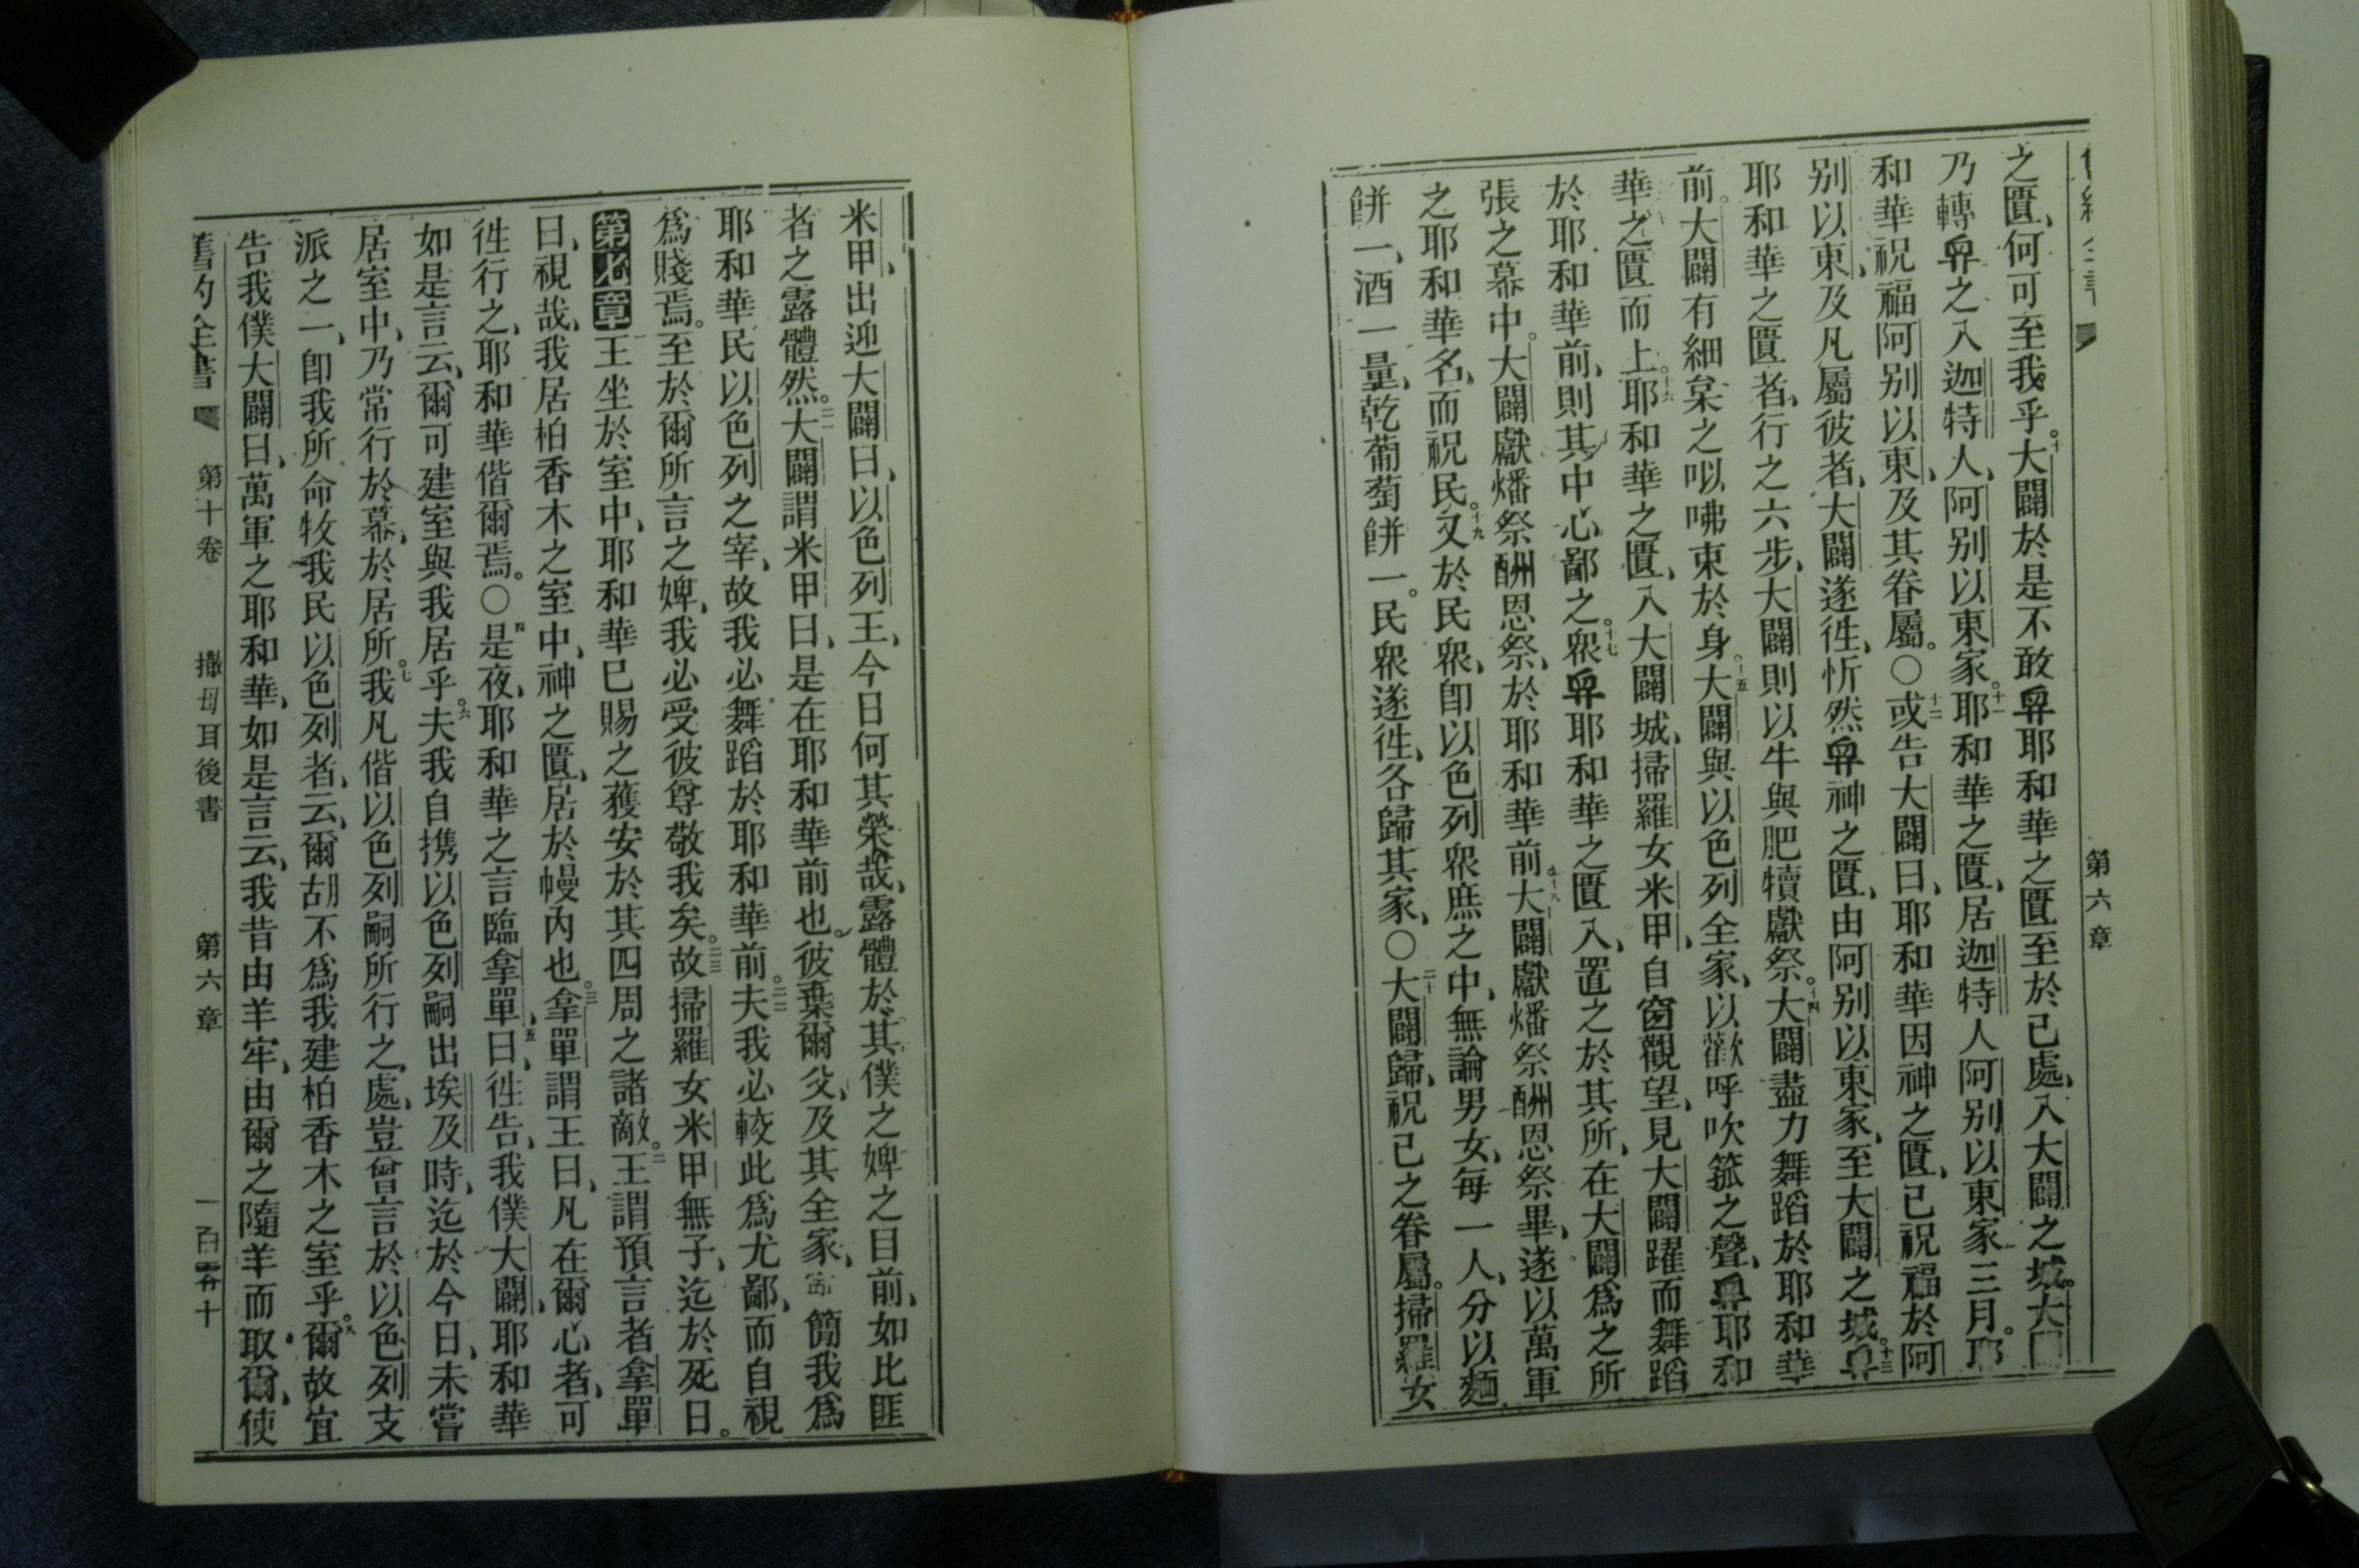 第六章
之匱、何可至我乎。十大闢於是不敢舁耶和華之匱至於己處、入大闢之城。大
乃轉舁之入迦特人、阿别以東家。十一耶和華之匱、居迦特人阿别以東家三月。耶
和華祝福阿别以東、及其眷屬。○十二或告大闢曰、耶和華因神之匱、已祝福於阿
别以東、及凡屬彼者、大闢遂徃、忻然舁神之匱、由阿别以東家、至大闢之城。十三舁
耶和華之匱者、行之六步、大闢則以牛與肥犢獻祭。十四大闢盡力舞蹈於耶和華
前。大闢有細枲之㕥咈束於身。十五大闢與以色列全家、以歡呼吹箛之聲、舁耶和
華之匱而上。十六耶和華之匱、入大闢城、掃羅女米甲、自窗觀望、見大闢躍而舞蹈
於耶和華前、則其中心鄙之。十七衆舁耶和華之匱入、置之於其所、在大闢爲之所
張之幕中。大闢獻燔祭酬恩祭、於耶和華前。十八大闢獻燔祭酬恩祭畢、遂以萬軍
之耶和華名、而祝民。十九又於民衆、卽以色列衆庶之中、無論男女、每一人、分以麵
餅一、酒一量、乾葡萄餅一。民衆遂徃、各歸其家、○二十大闢歸、祝己之眷屬。掃羅女
米甲、出迎大闢曰、以色列王、今日何其榮哉、露體於其僕之婢之目前、如比匪
者之露體然。二一大闢謂米甲曰、是在耶和華前也。彼棄爾父、及其全家、簡我爲
耶和華民以色列之宰、故我必舞蹈於耶和華前。二二夫我必較此爲尤鄙、而自視
爲賤焉。至於爾所言之婢、我必受彼尊敬我矣。二三故掃羅女米甲無子、迄於死日。
第七章王坐於室中、耶和華已賜之獲安於其四周之諸敵。二王謂預言者拿單
曰、視哉、我居柏香木之室中、神之匱、居於幔內也。三拿單謂王曰、凡在爾心者、可
徃行之、耶和華偕爾焉。○四是夜、耶和華之言臨拿單、五曰、徃告、我僕大闢、耶和華
如是言云、爾可建室與我居乎。六夫我自携以色列嗣出埃及時、迄於今日、未嘗
居室中、乃常行於幕、於居所。七我凡偕以色列嗣所行之處、豈曾言於以色列支
派之一、卽我所命牧我民以色列者、云、爾胡不爲我建柏香木之室乎。八爾故宜
告我僕大闢曰、萬軍之耶和華、如是言云、我昔由羊牢、由爾之隨羊而取爾、使
舊約全書 第十卷 撒母耳後書 第六章 一百零十